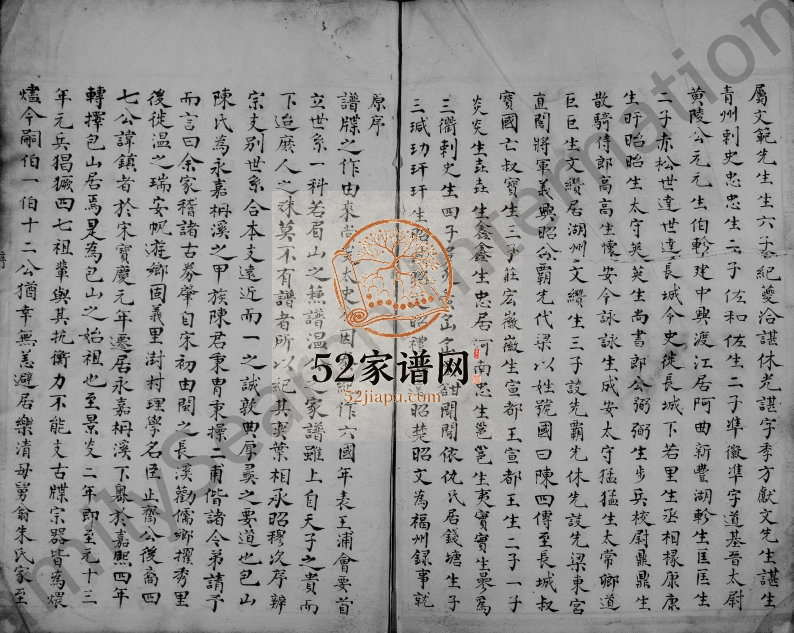 屬文範先生生六子紀夔洽諶休光諶字季方獻文先生諶生
青州刺史忠忠生二子佐和佐生二子準徽準字道基晉太尉
黄陵公元元生伯軫建中興渡江居阿曲新豐湖軫生匡匡生
二子赤松世達世達長城令史徙長城下若里生丞相掾康康
生盱昭昭生太守英英生尚書郎公弼弼生步兵校尉鼎鼎生
散騎侍郎高高生懷安令詠詠生成安太守猛猛生太常卿道
巨巨生文纘居湖州文纘生三子談先霸先休先談先梁東宮
直閣將軍義興昭公霸先代梁以姓號國曰陳四傳至長城叔
寶國亡叔寶生三子莊宏徽徽生宣都王宣都王生二子一子
炎炎生垚垚生鑫鑫生忠居河南忠生邕邕生夷實實生㬅為
三衢刺史生四子 山金 鉗閗閗依仇氏居錢塘生子
三瑊玏玕玕生昭 昭禮 昭楚昭文為福州録事就
原序
譜牒之作由來尚 太史公因 作六國年表王浦會要首
立世系一科若眉山之蘇譜温 之家譜雖上自天子之貴而
下迨庶人之殊莫不有譜者所以紀其奕葉相承昭穆次序辨
宗支别世系合本支遠近而一之誠敦典厚彛之要道也包山
陳氏為永嘉枏溪之甲族陳君秉胄秉操二甫偕諸令弟請予
而言曰余家稽諸古券肇自宋初由閩之長溪勸儒鄉擢秀里
後徙温之瑞安帆遊鄉固義里澍村理學名臣止齋公後裔四
七公諱鎮者於宋寶慶元年遷居永嘉枏溪下嶴於嘉熙四年
轉擇包山居焉是為包山之始祖也至景炎二年即至元十三
年元兵猖獗四七祖輩與其抗衡力不能支古牒宗器皆為煨
燼今嗣伯一伯十二公猶幸無恙避居樂清母舅翁朱氏家至
52家谱网
52jiapu.com
FamilySearch International